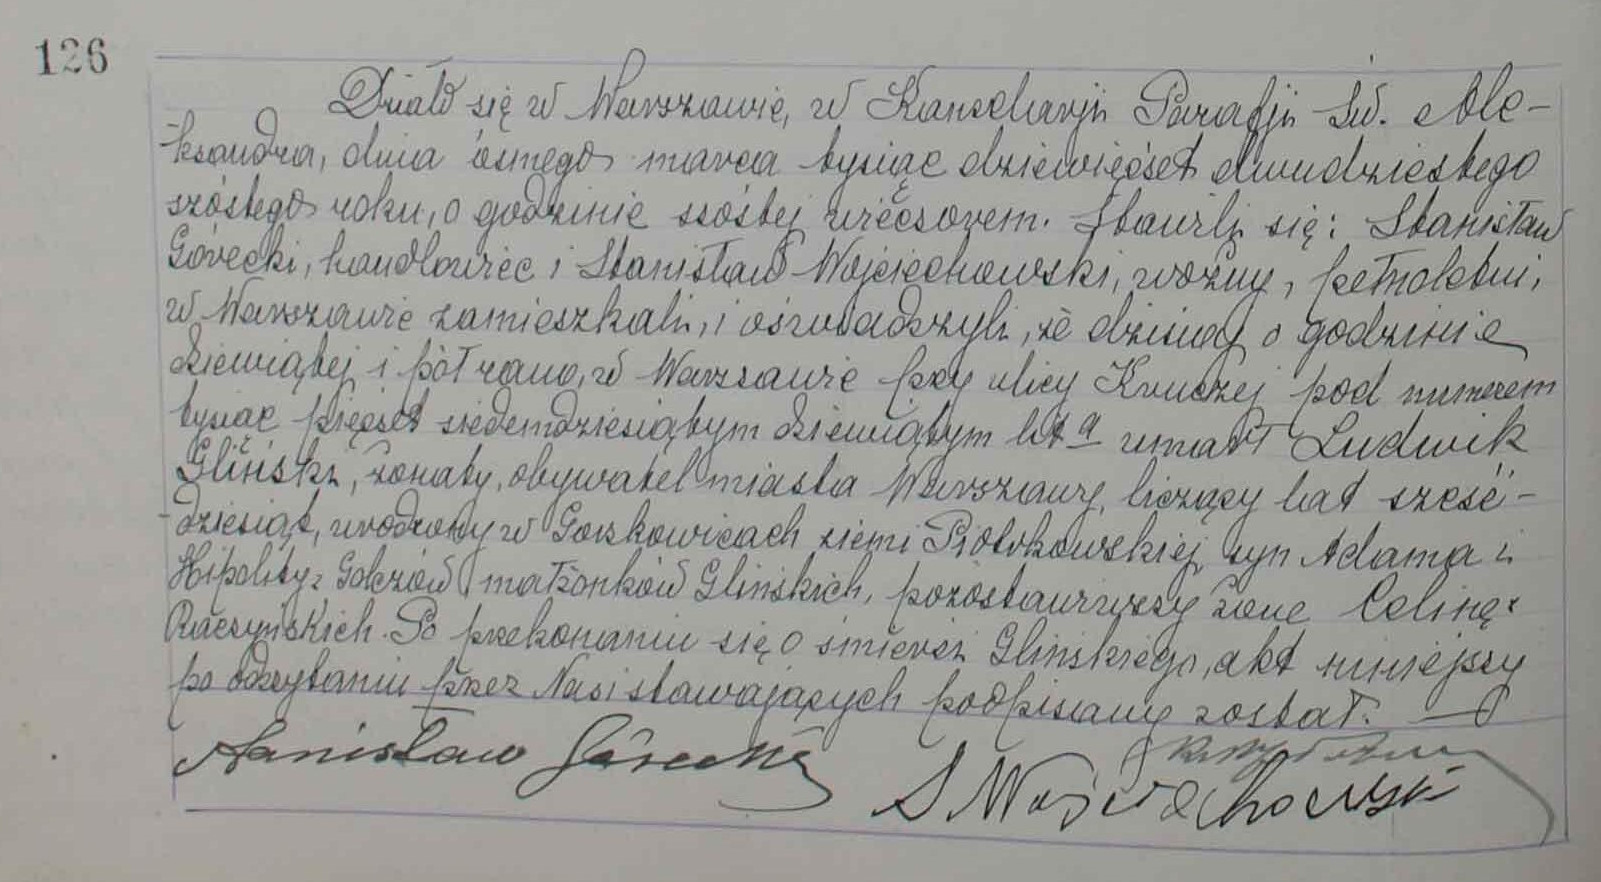 126
Działo się w Warszawie, w Kancelaryi Parafji Św. Ale-
ksandra, dnia ósmego marca tysiąc dziewięćset dwudziestego
szóstego roku, o godzinie szóstej wieczorem. Stawili się: Stanisław
Górecki, handlowiec i Stanisław Wojciechowski, woźny, pełnoletni,
w Warszawie zamieszkali, i oświadczyli, że dzisiaj o godzinie
dziewiątej i pół rano, w Warszawie przy ulicy Kruczej pod numerem
tysiąc pięćset siedemdziesiątym dziewiątym lit a umarł Ludwik
Gliński, żonaty, obywatel miasta Warszawy, liczący lat sześć-
dziesiąt, urodzony w Gorzkowicach ziemi Piotrkowskiej, syn Adama i
Hipolity z Golczów małżonków Glińskich, pozostawiwszy żonę Celinę z
Raczyńskich. Po przekonaniu się o śmierci Glińskiego, akt niniejszy
po odczytaniu przez Nas i stawających podpisany został.
Stanisław Górecki
S Wojciechowski